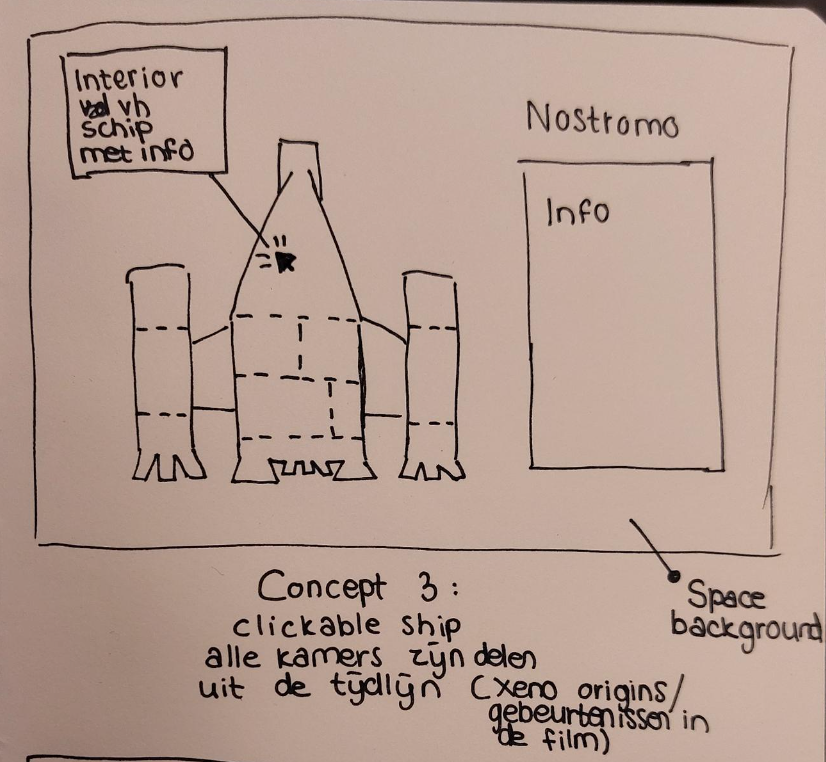 Interior
vh
schip
met info
Nostromo
Info
Space
background
Concept 3:
clickable ship
alle kamers zijn delen
uit de tijdlijn (xeno origins/
gebeurtenissen in
de film)